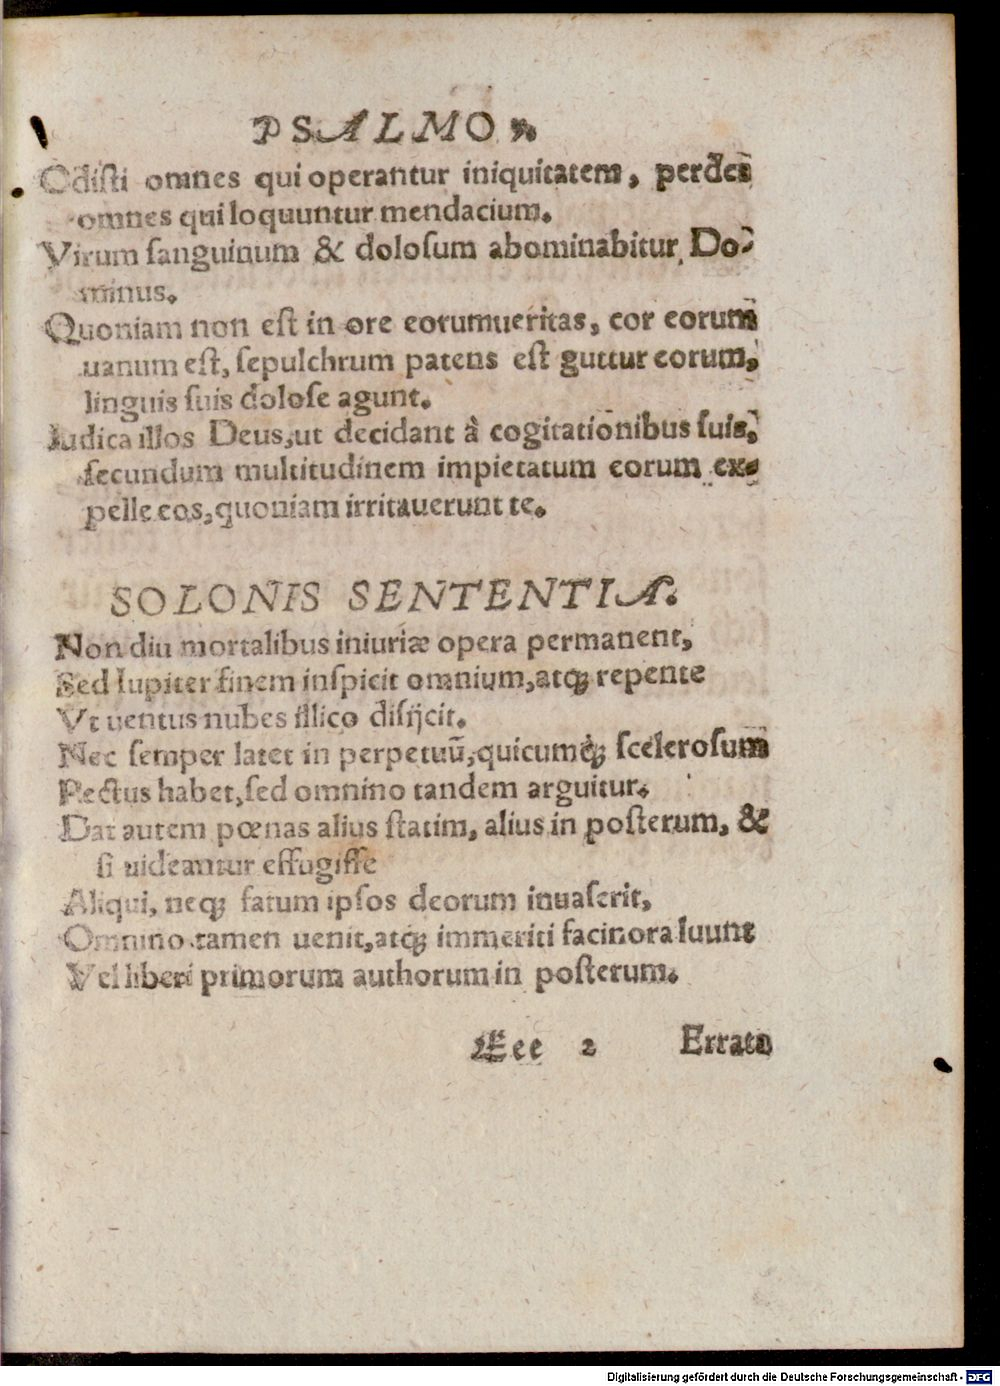 PSALMO 5.
Odisti omnes qui operantur iniquitatem, perdes
omnes qui loquuntur mendacium.
Virum sanguinum & dolosum abominabitur Do-
minus.
Quoniam non est in ore eorumueritas, cor eorum
uanum est, sepulchrum patens est guttur eorum,
linguis suis dolose agunt.
Iudica illos Deus, ut decidant à cogitationibus suis,
secundum multitudinem impietatum eorum ex-
pelle eos, quoniam irritauerunt te.
SOLONIS SENTENTIA.
Non diu mortalibus iniuriæ opera permanent,
Sed Iupiter finem inspicit omnium, atq; repente
Vt uentus nubes illico disijcit.
Nec semper latet in perpetuũ, quicumq; scelerosum
Pectus habet, sed omnino tandem arguitur.
Dat autem pœnas alius statim, alius in posterum, &
si uideantur effugisse
Aliqui, neq; fatum ipsos deorum inuaserit,
Omnino tamen uenit, atq; immeriti facinora luunt
Vel liberi primorum authorum in posterum.
Eee 2 Errata
Digitalisierung gefördert durch die Deutsche Forschungsgemeinschaft - DFG